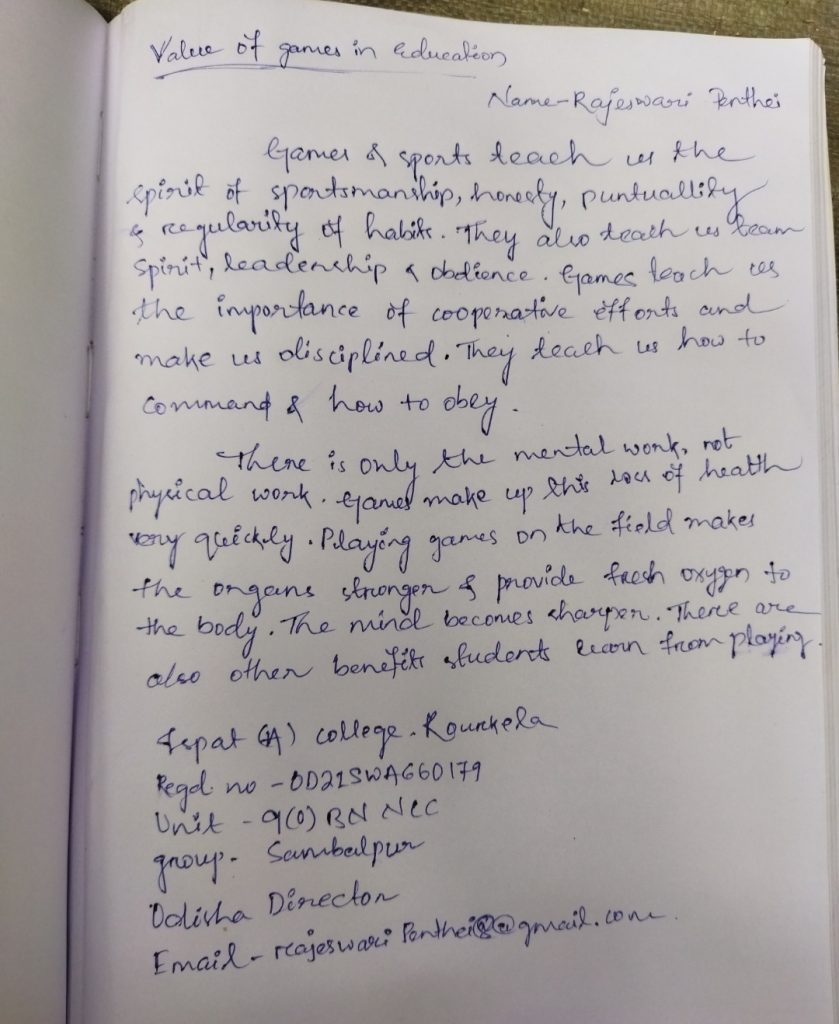 Value of games in education
Name-Rajeswari Penthei
Games & sports teach us the
spirit of sportsmanship, honesty, puntuallity
& regularity of habits. They also teach us team
spirit, leadership & obdience. Games teach us
the importance of cooperative efforts and
make us disciplined. They teach us how to
command & how to obey.
There is only the mental work, not
physical work. Games make up this loss of health
very quickly. Playing games on the field makes
the organs stronger & provide fresh oxygen to
the body. The mind becomes sharper. There are
also other benefits students learn from playing.
Ispat (A) college. Rourkela
Regd no - OD21SWA660179
Unit - 9(O) BN NCC
group - Sambalpur
Odisha Director
Email - rajeswari Penthei @gmail.com.